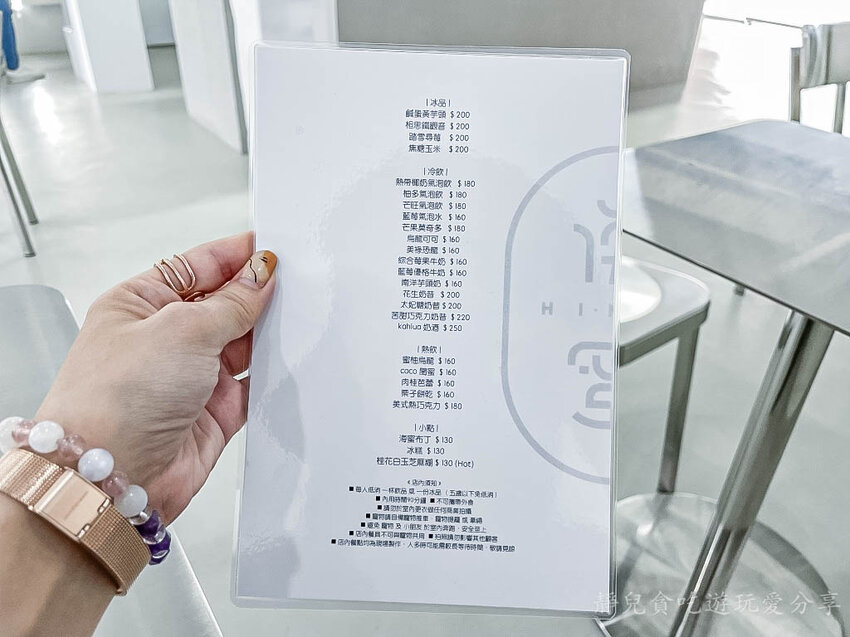 | 冰品 |
鹹蛋黃芋頭 $200
相思鐵觀音 $200
踏雪尋莓 $200
焦糖玉米 $200
| 冷飲 |
熱帶椰奶氣泡飲 $180
柚多氣泡飲 $180
芒旺氣泡飲 $180
藍莓氣泡水 $160
芒果莫奇多 $180
烏龍可可 $160
美祿恐龍 $160
綜合莓果牛奶 $160
藍莓優格牛奶 $160
南洋芋頭奶 $160
花生奶昔 $200
太妃糖奶昔 $200
苦甜巧克力奶昔 $220
kahlua 奶酒 $250
| 熱飲 |
蜜柚烏龍 $160
coco 閨蜜 $160
肉桂芭蕾 $160
栗子餅乾 $160
美式熱巧克力 $180
| 小點 |
海蜜布丁 $130
冰糕 $130
桂花白玉芝麻糊 $130 (Hot)
《店內須知》
■ 每人低消 一杯飲品 或 一份冰品 （五歲以下免低消）
■ 內用時間90分鐘 ■ 不可攜帶外食
■ 請勿於室內更衣做任何商業拍攝
■ 寵物請自備寵物推車、寵物提籠 或 牽繩
■ 避免 寵物 及 小朋友 於室內奔跑，安全至上
■ 店內餐具不可與寵物共用 ■ 拍照請勿影響其他顧客
■ 店內餐點均為現場製作，人多時可能需較長等待時間，敬請見諒
靜兒貪吃遊玩愛分享